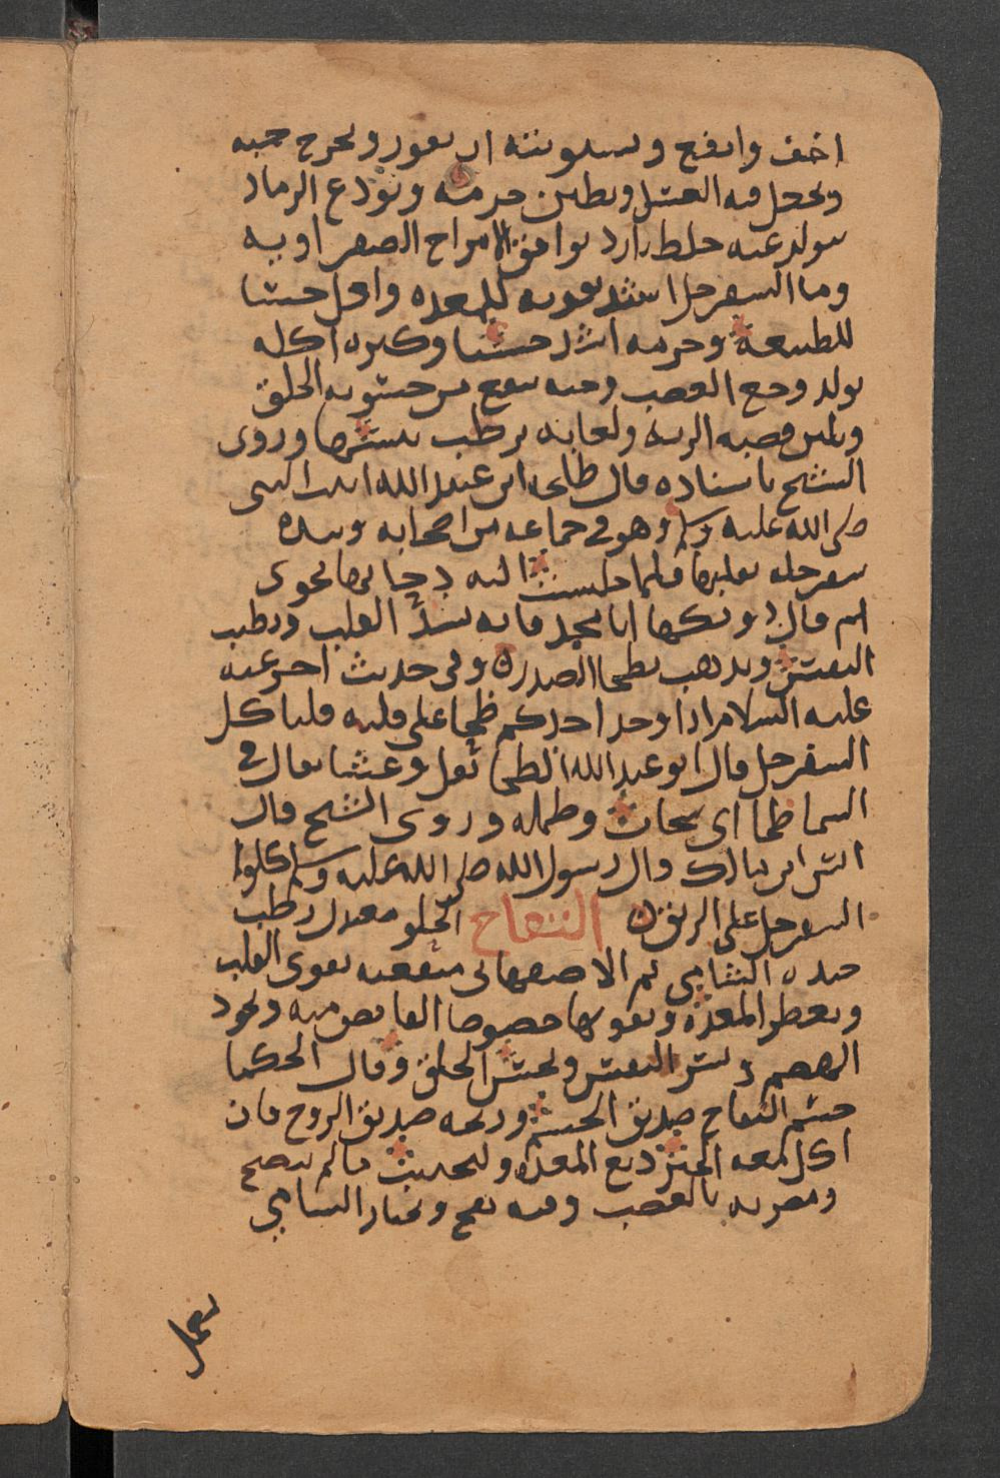 اخف وانفع وتسويته ان يقور ويخرج حبه
ويجعل فيه العسل ويطين جرمه ويودع الرماد
يتولد عنه خلط بارد يوافق الامزاج الصفراويه
وما السفرجل اشد تقويه للمعده واقل حبسا
للطبيعة وجرمه اشد حبسا وكثرة اكله
يولد وجع العصب وحبه ينفع من خشونه الحلق
ويلين قصبه الريه ولعابه يرطب يبسها وروى
الشيخ باسناده قال طلحه ابن عبيد الله اتيت النبي
صلى الله عليه وسلم وهو في جماعه من اصحابه وبيده
سفرجله يقلبها فلما جلست اليه دحا بها نحوى
ثم قال دونكها ابا محمد فانه تشد القلب وتطيب
النفس وتذهب بطخا الصدر وفي حديث اخر عنه
عليه السلام اذا وجد احدكم طخا على قلبه فلياكل
السفرجل قال ابو عبد الله الطخا ثقل وغشا يقال في
السما طخا اى سحاب وظلمه وروى الشيخ قال
انس ابن مالك قال رسول الله صلى الله عليه وسلم كلوا
السفرجل على الريق التفاح الحلو معتدل رطب
جيده الشامي ثم الاصفهانى منفعته يقوى القلب
ويعطر المعدة ويقويها خصوصا القابض منه ويجود
الهضم ويسر النفس ويحسن الخلق وقال الحكما
جسم التفاح صديق الجسم وريحه صديق الروح فان
اكل معه الخبز دبغ المعدة وليحدث مالم ينضج
ومضرته بالعصب وفيه نفخ ويختار الشامي
يعمل